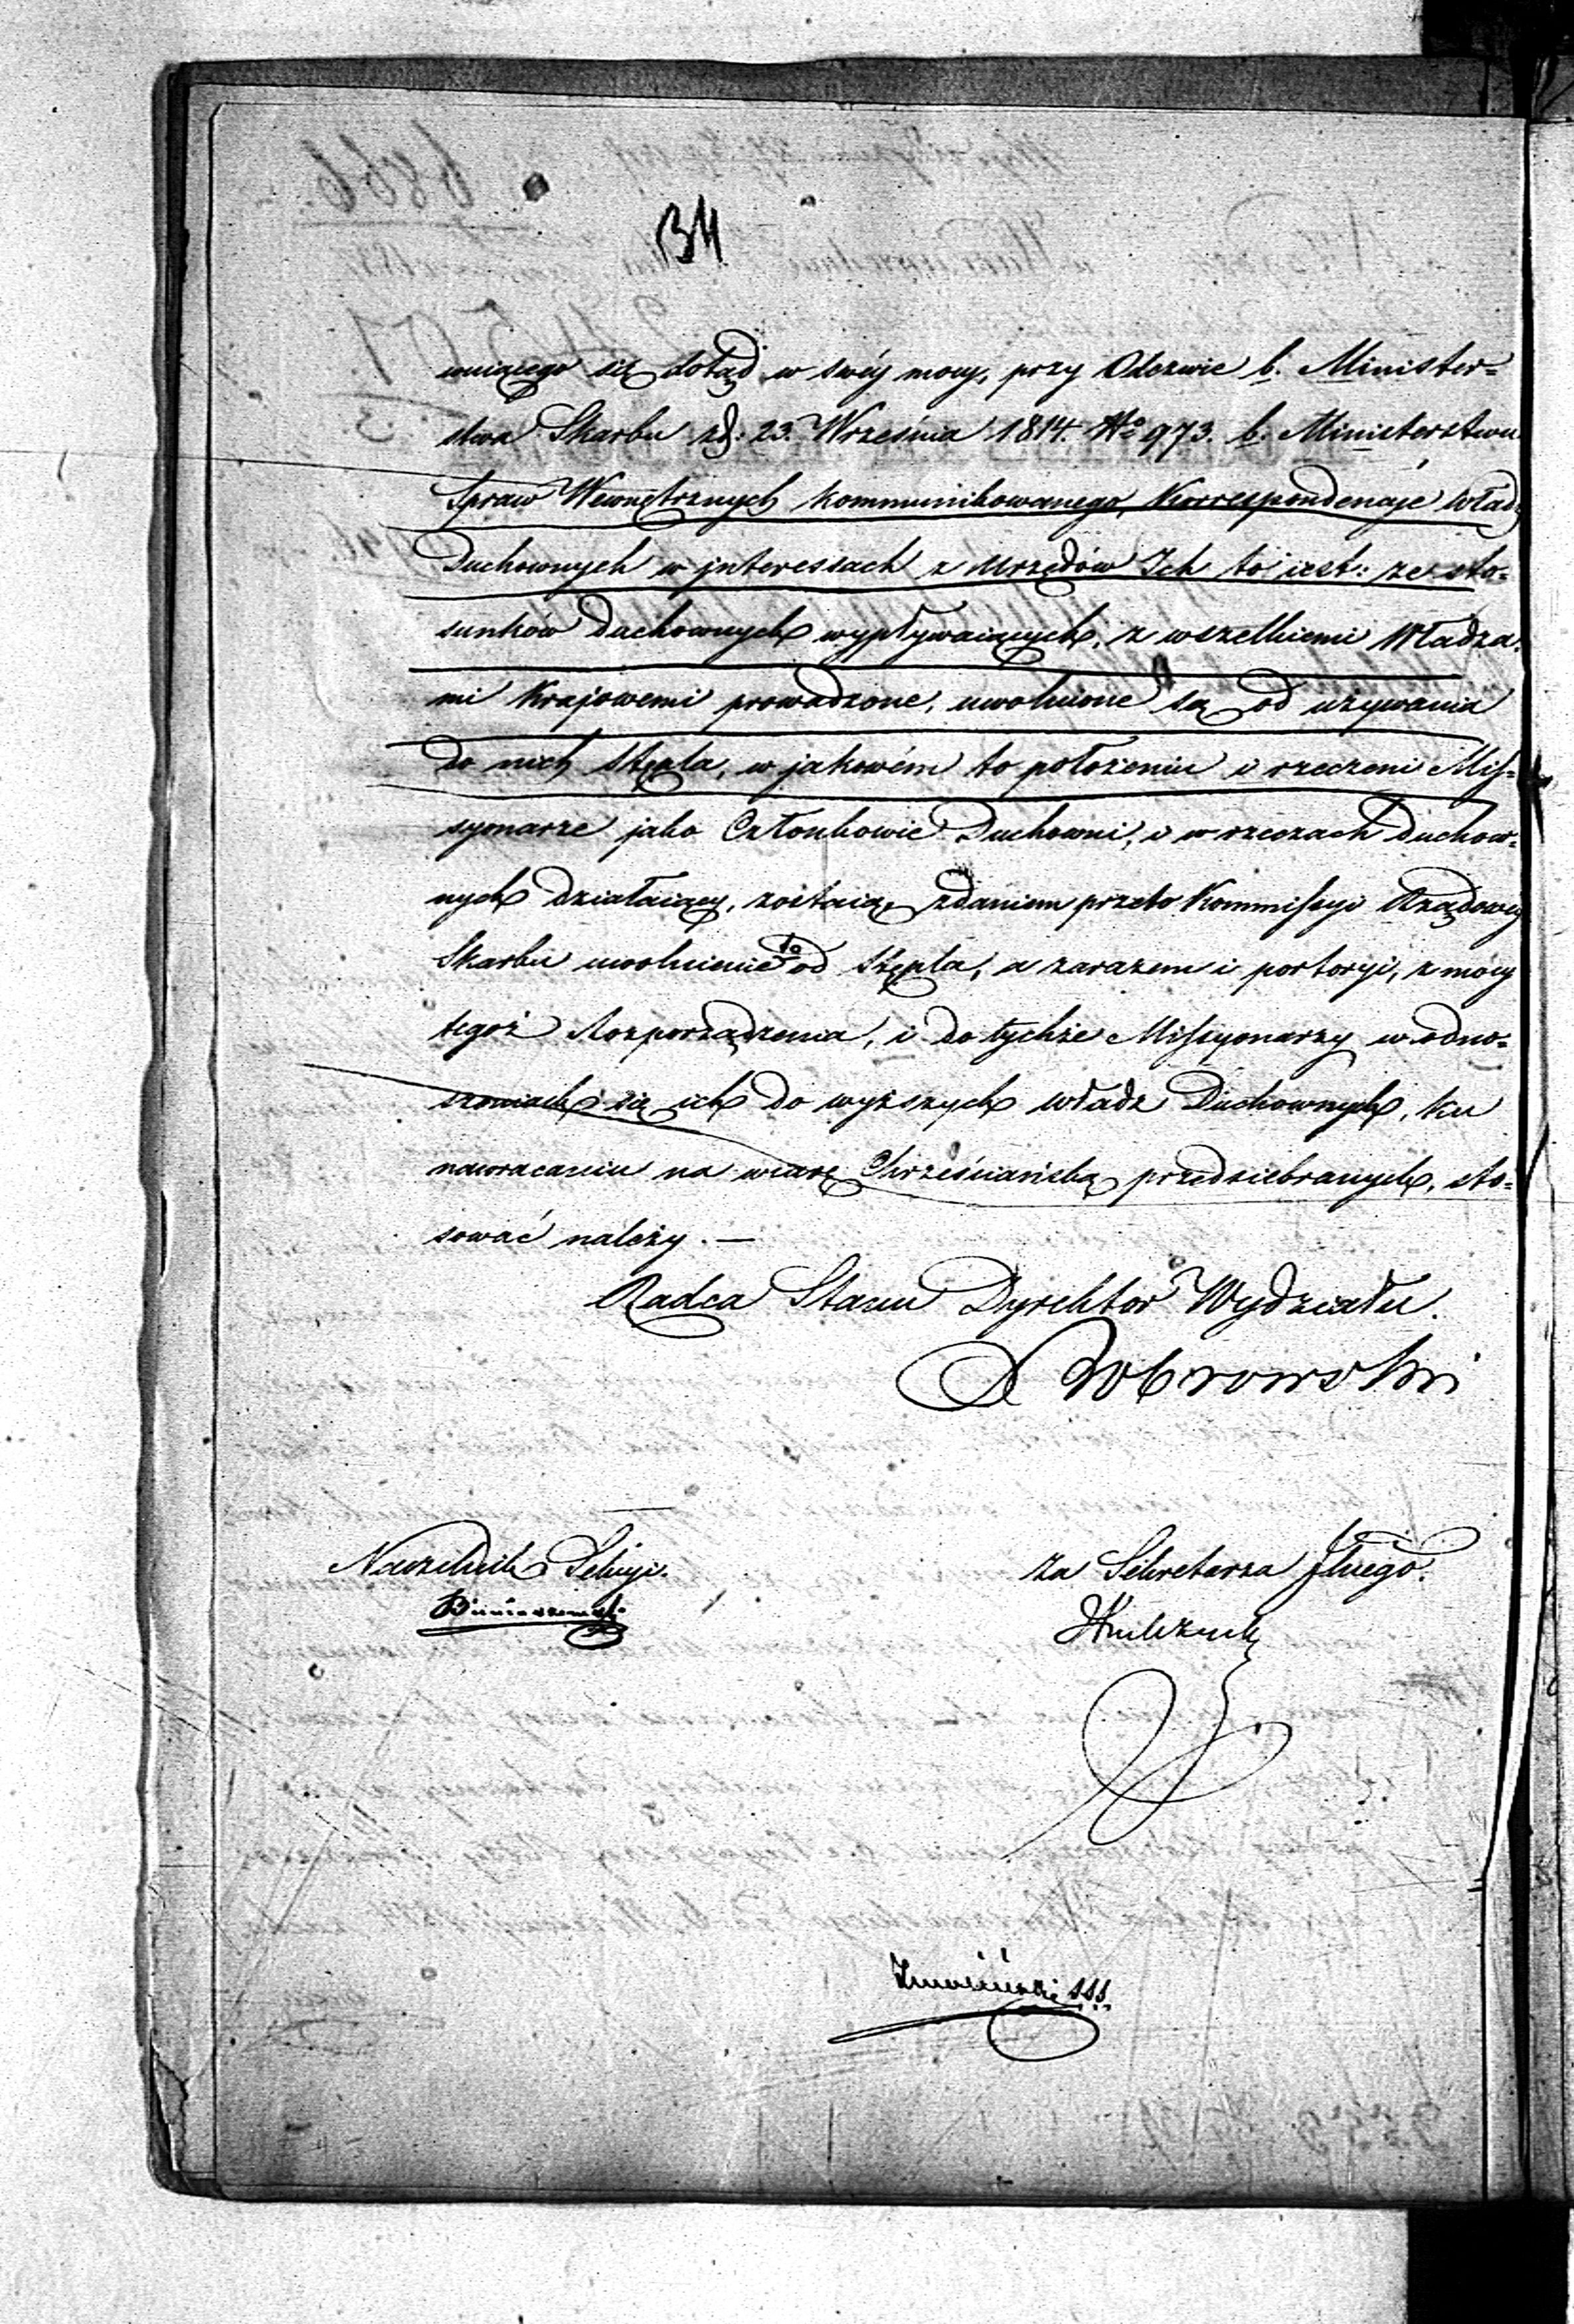 134
muiącego się dotąd w swéj mocy, przy Odezwie b. Minister=
stwa Skarbu z d: 23. Września 1814. No 973. b. Ministerstwu
Spraw Wewnętrznych kommunikowanego, Korrespondencye Władz
Duchownych w jnteressach z Urzędów Ich to iest: ze sto=
sunków duchownych wypływaiących, z wszelkiemi Władza=
mi Krajowemi prowadzone, uwolnione są od używania
do nich stępla, w jakowém to położeniu i rzeczeni Mis=
syonarze jako Członkowie Duchowni, i w rzeczach duchow=
nych działaiący, zostaią, zdaniem przeto Kommissyi Rządowéy
Skarbu uwolnienie to od stępla, a zarazem i portoryi, z mocy
tegoż Rozporządzenia, i do tychże Missyonarzy w odno=
szeniach się ich do wyższych władz Duchownych, ku
nawracaniu na wiarę Chrześciańską przedsiebranych, sto=
sować należy. —
Radca Stanu Dyrektor Wydziału.
Dobrowolski
Naczelnik Sekcyi.
za Sekretarza Jlnego.